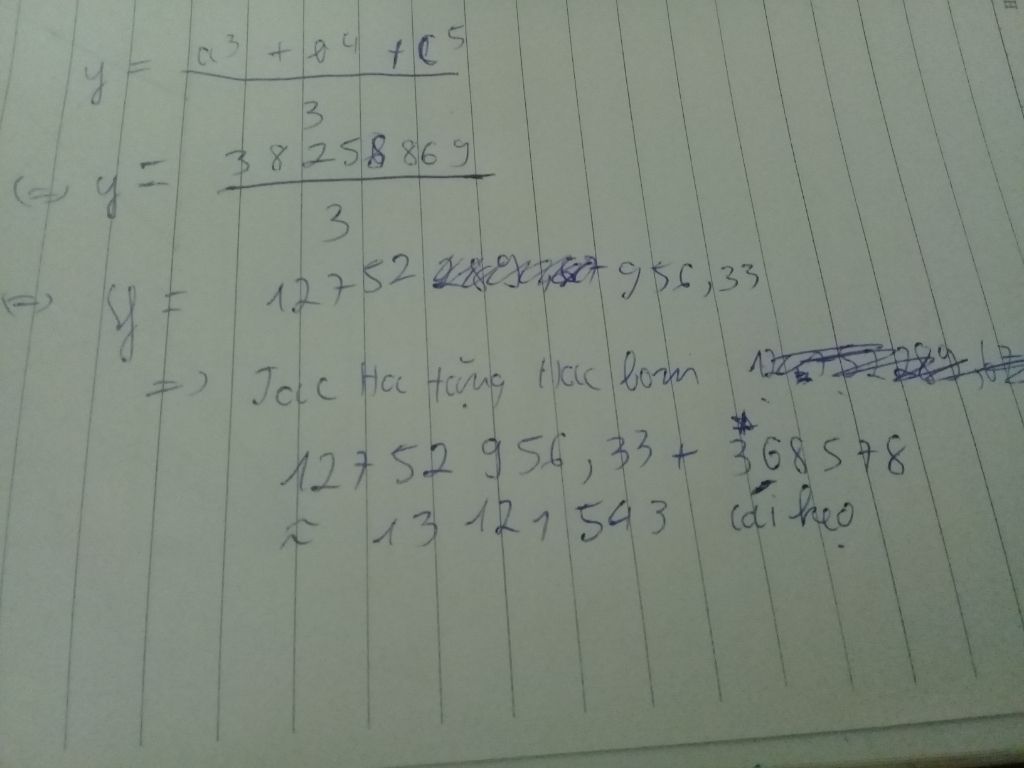 y = a³ + b⁴ + c⁵
3
(=) y = 38258869
3
(=) y = 12752 956,33
=) Tac Ha tặng Hac bom
12752956,33 + 368578
≈ 13 121 543 cái kẹo